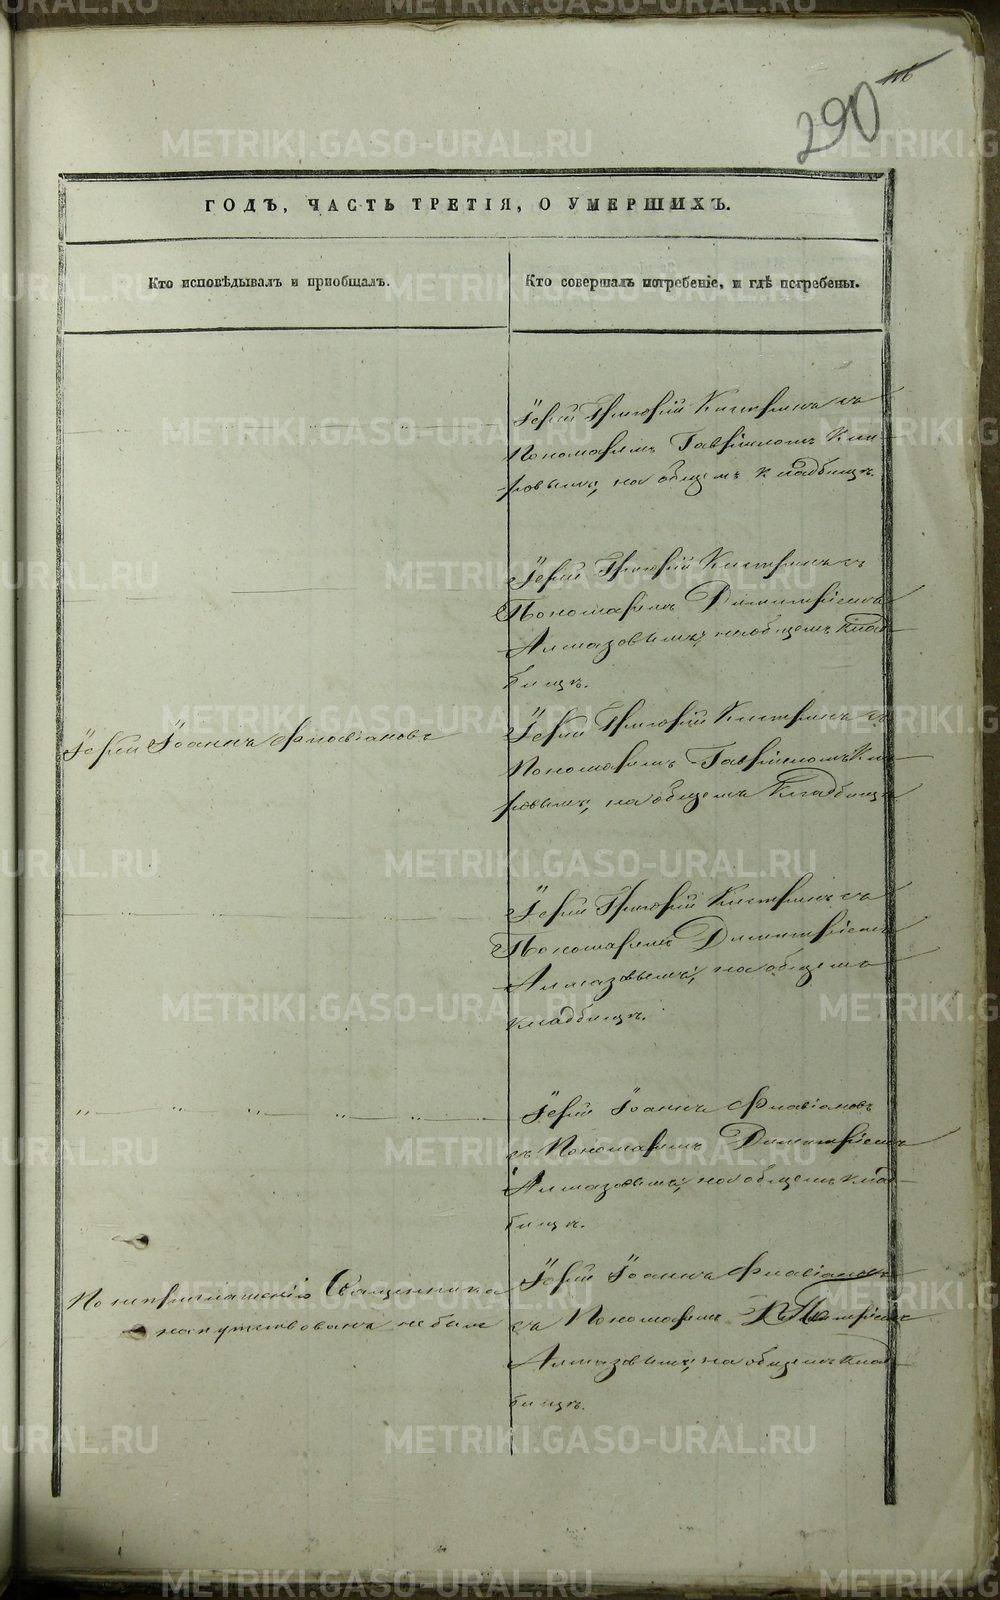 290
116
ГОДЪ, ЧАСТЬ ТРЕТІЯ, О УМЕРШИХЪ.
Кто исповѣдывалъ и пріобщалъ.
Кто совершалъ погребеніе, и гдѣ погребены.
Іерей Григорій Кистринъ съ
Пономаремъ Гавріиломъ Ки-
ровымъ, на общемъ кладбищѣ.
Іерей Григорій Кистринъ съ
Пономаремъ Димитріемъ
Алмазовымъ, на общемъ клад-
бищѣ.
Іерей Іоаннъ Флавіановъ
Іерей Григорій Кистринъ съ
Пономаремъ Гавріиломъ Ки-
ровымъ, на общемъ кладбищѣ
Іерей Григорій Кистринъ съ
Пономаремъ Димитріемъ
Алмазовымъ, на общемъ
кладбищѣ.
Іерей Іоаннъ Флавіановъ
съ Пономаремъ Димитріемъ
Алмазовымъ, на общемъ клад-
бищѣ.
По неприглашенію Священника
напутствованъ не былъ
Іерей Іоаннъ Флавіановъ
съ Пономаремъ Димитріемъ
Алмазовымъ, на общемъ клад-
бищѣ.
METRIKI.GASO-URAL.RU